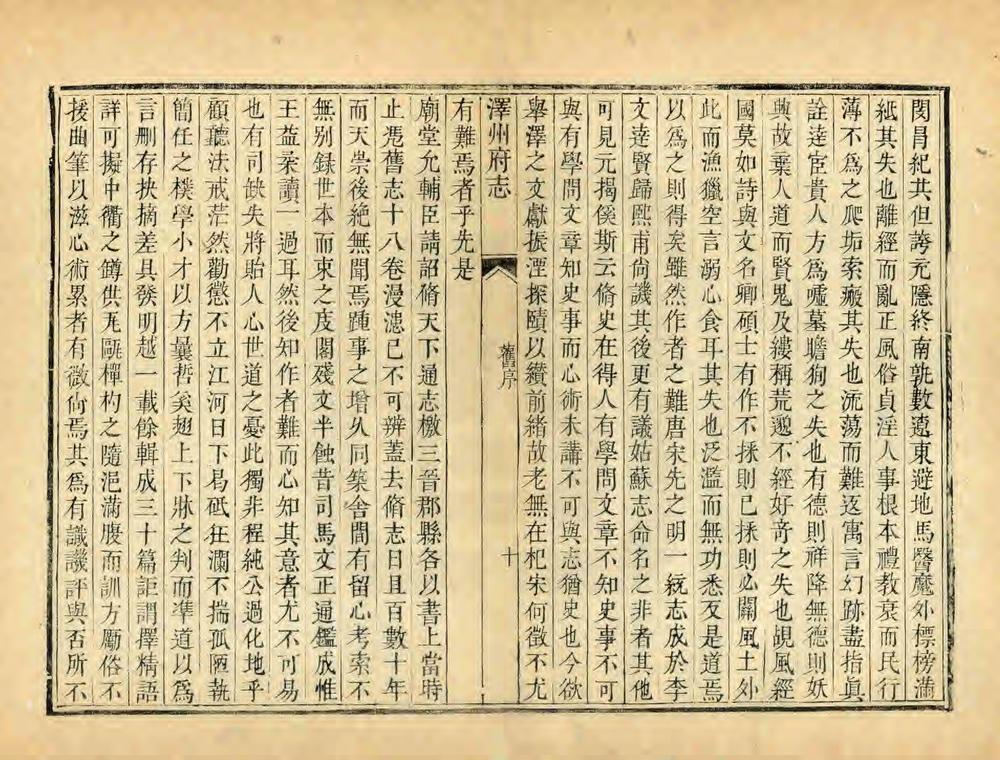 閔員紀其但誇充隱終南孰數遼東避地馬醫魔外標榜滿
紙其失也離經而亂正風俗貞淫人事根本禮教衰而民行
薄不爲之爬垢索瘢其失也流蕩而難返寓言幻跡盡指眞
詮達宦貴人方爲嘘墓瞻狥之失也有德則祥降無德則妖
興故棄人道而賢鬼及縷稱荒邈不經好奇之失也覘風經
國莫如詩與文名卿碩士有作不採則已採則必關風土外
此而漁獵空言溺心食耳其失也泛濫而無功悉反是道焉
以爲之則得矣雖然作者之難唐宋先之明一統志成於李
文達賢歸熙甫尙譏其後更有議姑蘇志命名之非者其他
可見元揭傒斯云脩史在得人有學問文章不知史事不可
與有學問文章知史事而心術未講不可與志猶史也今欲
舉澤之文獻振湮探賾以纘前緒故老無在杞宋何徵不尤
澤州府志
舊序
十
有難焉者乎先是
廟堂允輔臣請詔脩天下通志檄三晉郡縣各以書上當時
止凭舊志十八卷漫漶已不可辨蓋去脩志日且百數十年
而天崇後絶無聞焉踵事之增久同築舍間有留心考索不
無别錄世本而束之庋閣殘文半蝕昔司馬文正通鑑成惟
王益柔讀一過耳然後知作者難而心知其意者尤不可易
也有司缺失將貽人心世道之憂此獨非程純公過化地乎
顧聽法戒茫然勸懲不立江河日下曷砥狂瀾不揣孤陋執
簡任之樸學小才以方曩哲奚翅上下牀之判而準道以爲
言刪存抉摘差具發明越一載餘輯成三十篇詎謂擇精語
詳可擬中衢之罇供瓦甌樿杓之隨挹滿腹而訓方厲俗不
援曲筆以滋心術累者有微尙焉其爲有識譏評與否所不